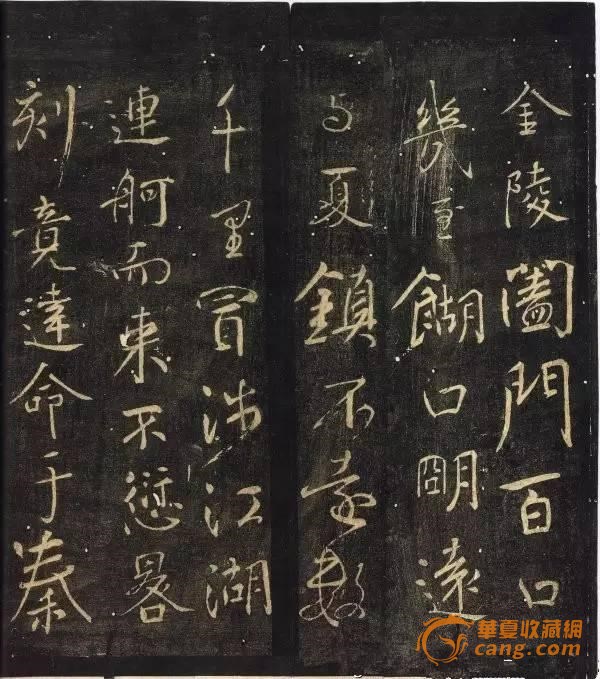 金陵闔門百口
幾至餬口朙遠
与夏鎮不遠數
千里冒涉江湖
連舸而來不愆晷
刻竟達命于秦
華夏收藏網
cang.com